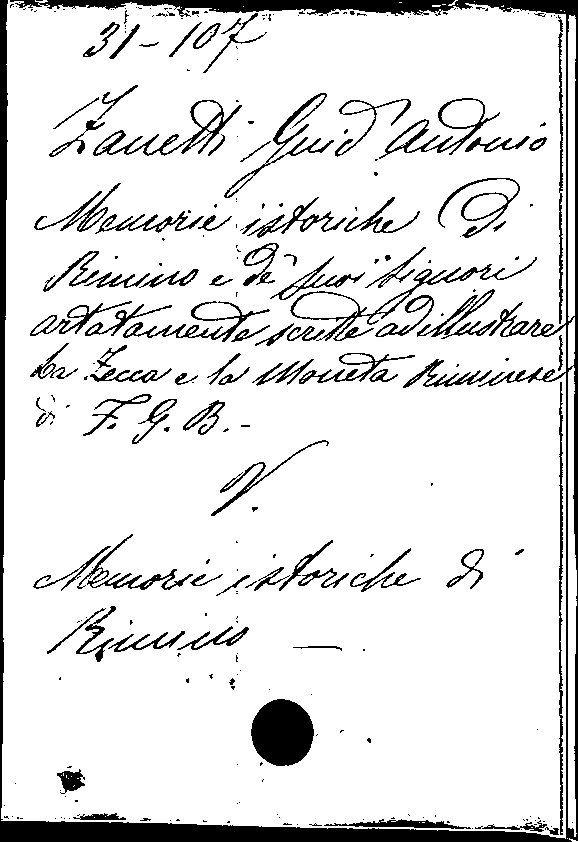 31-107
Zanetti Guid'Antonio
Memorie istoriche di
Rimino e de' suoi signori
artatamente scritte ad illustrare
la Zecca e la Moneta Riminese
di F. G. B. -
V.
Memorie istoriche di
Rimino —